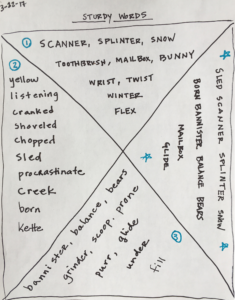 3-22-17
STURDY WORDS
① SCANNER, SPLINTER, SNOW
TOOTHBRUSH, MAILBOX, BUNNY
WRIST, TWIST
WINTER
FLEX
②
yellow
listening
cranked
shoveled
chopped
Sled
procrastinate
Creek
born
kettle
bannister, balance, bears
grinder, scoop, prone
purr, glide
under
③
fill
SLED SCANNER SPLINTER SNOW
BORN BANNISTER BALANCE BEARS
MAILBOX
GLIDE